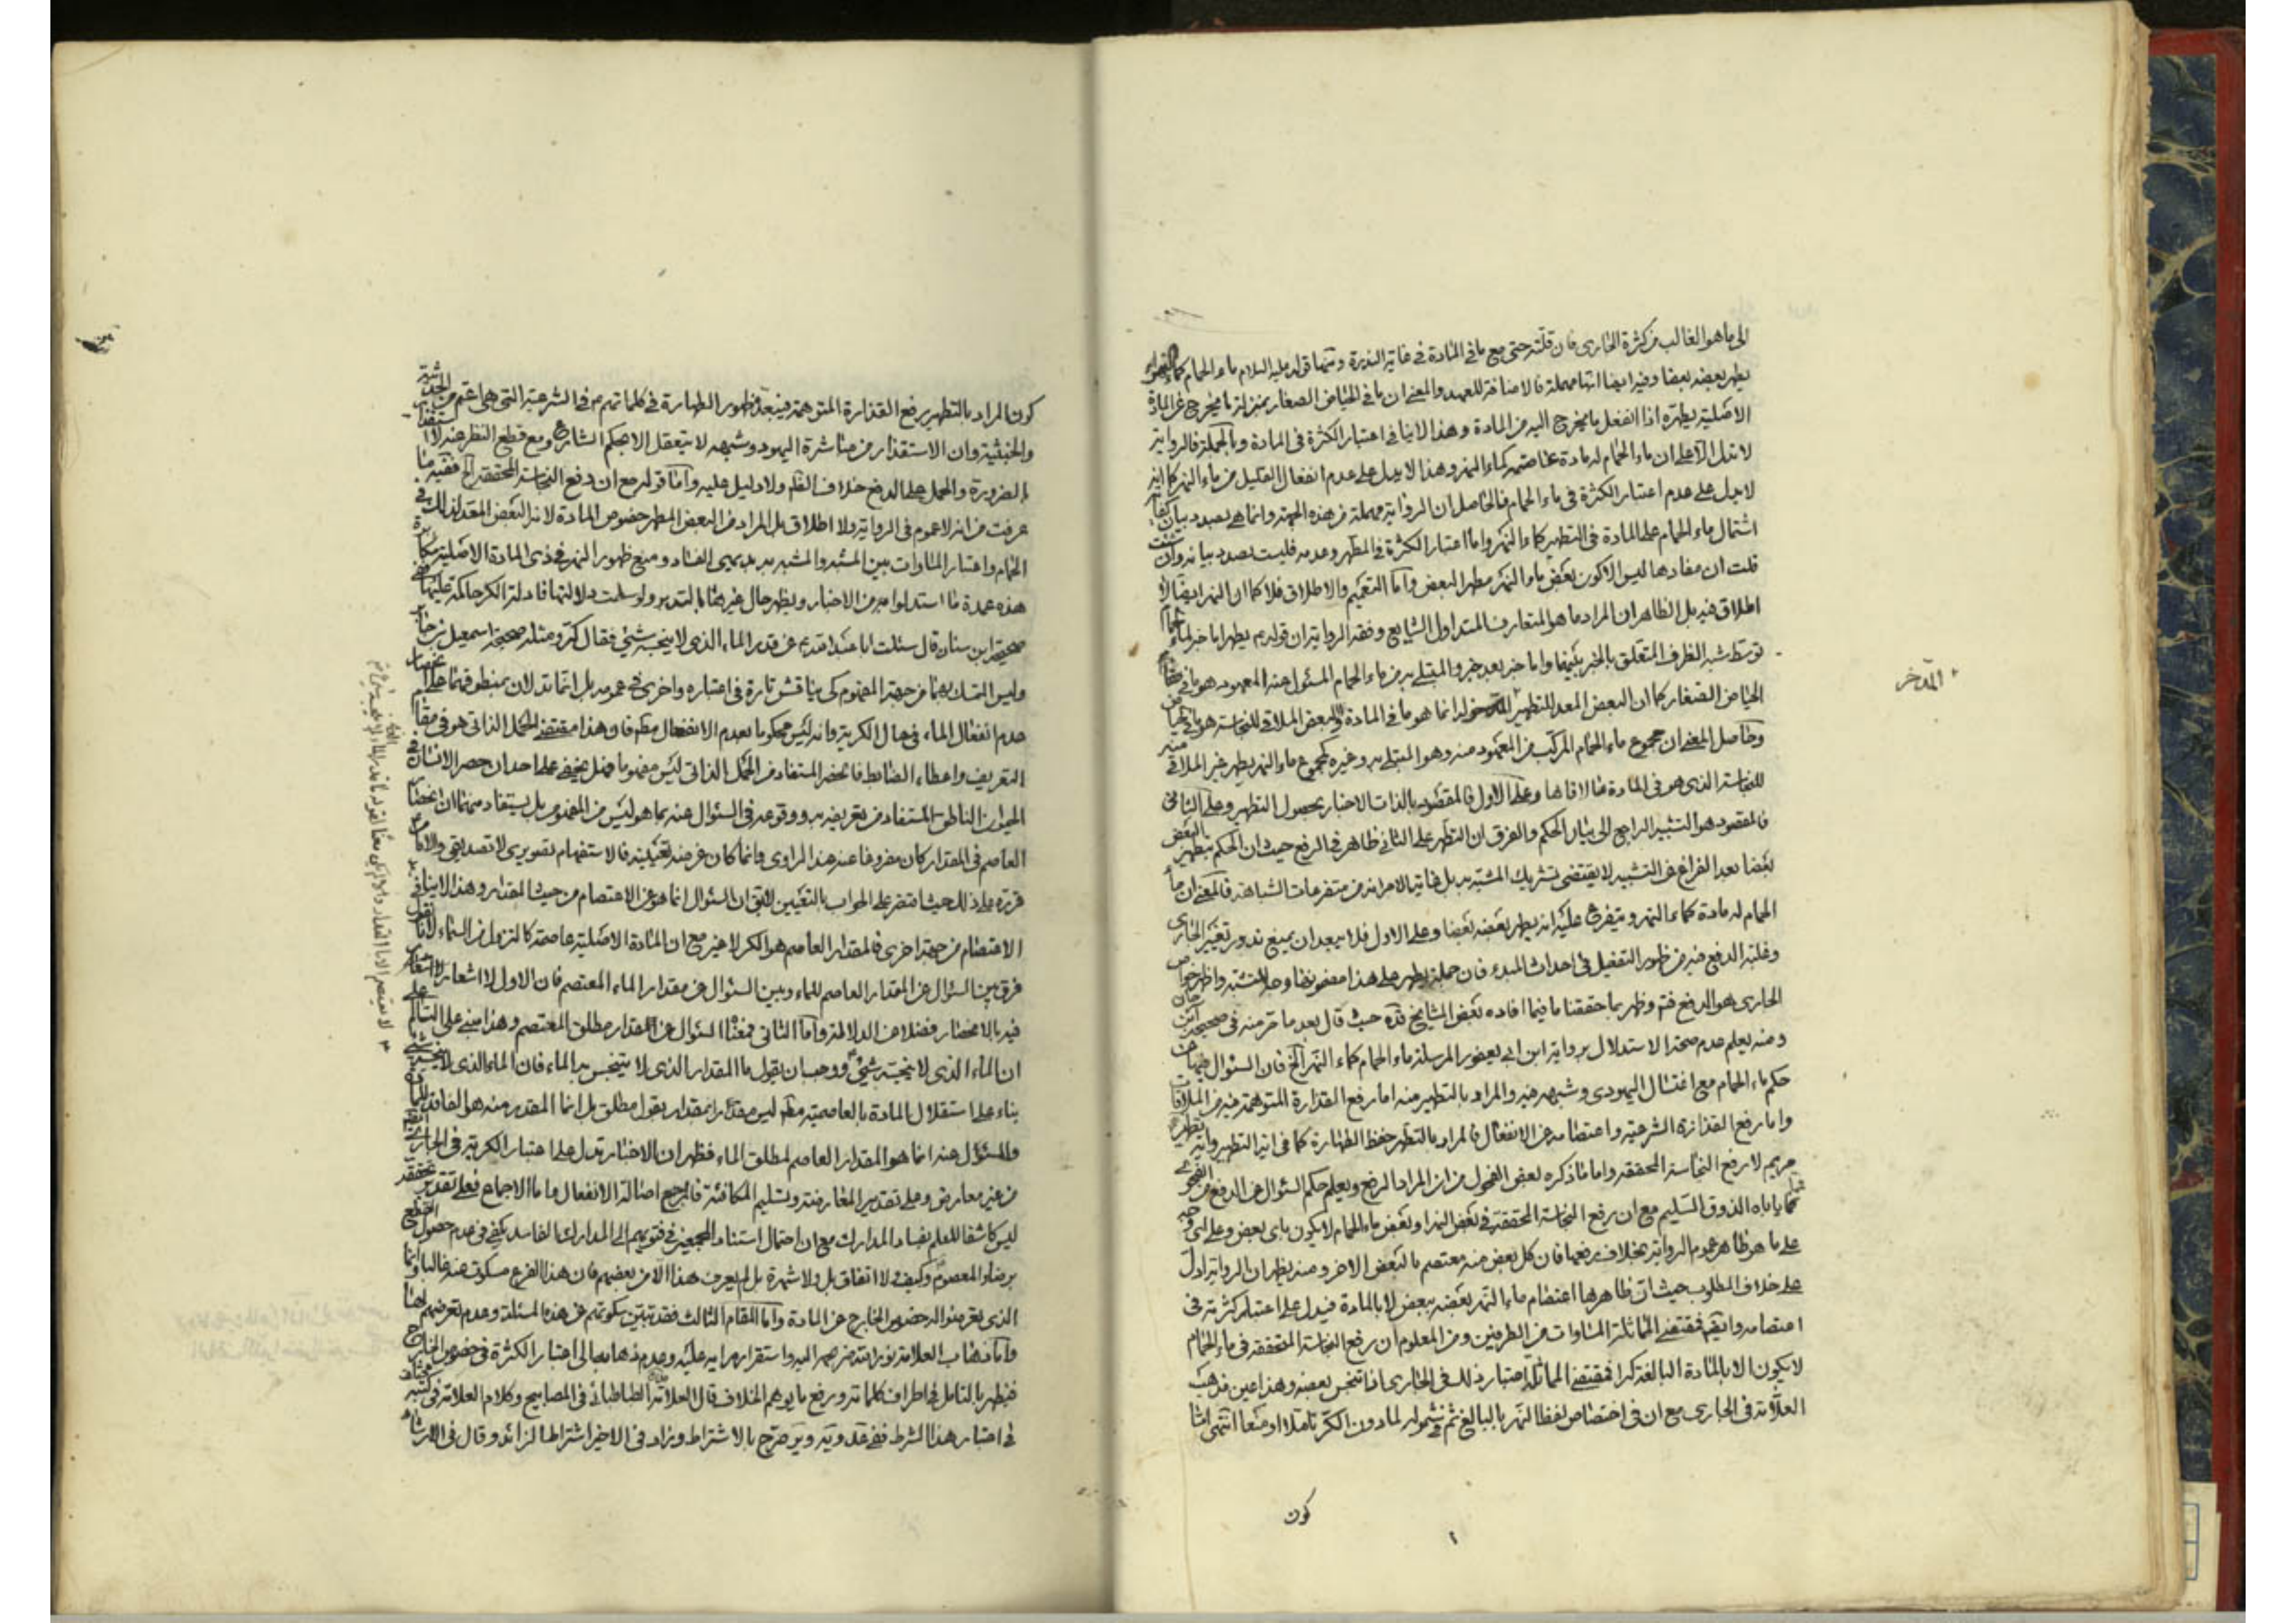 الى ما هو الغالب من كثرة الجارى فان قلته حتى مع ما فى المادة فى غاية الندرة ومنها قوله عليه السلام ماء الحمام كماء النهر
يطهر بعضه بعضا وفيه ايضا انها مهملة فالاضافة للعهد والمعنى ان ما فى الحياض الصغار بمنزلة ما يخرج عن المادة
الاصلية يطهره اذا انفعل ما يخرج اليه من المادة وهذا لا ينافى اعتبار الكثرة فى المادة وبالجملة فالرواية
لا تدل الا على ان ماء الحمام له مادة عاصمة كماء النهر وهذا لا يدل على عدم انفعال القليل من ماء النهر كما انه
لا يدل على عدم اعتبار الكثرة فى ماء الحمام فالحاصل ان الرواية مهملة من هذه الجهة وانما هى بصدد بيان
اشتمال ماء الحمام على المادة فى التطهير كماء النهر واما اعتبار الكثرة فى المطهر وعدمه فليست بصدد بيانه وان شئت
قلت ان مفادها ليس الا كون بعض ماء النهر مطهر البعض واما التعميم والاطلاق فلا كما ان النهر ايضا لا
اطلاق فيه بل الظاهر ان المراد ما هو المتعارف المتداول الشايع وفقه الرواية ان قوله ع يطهر اما خبر لماء الحمام
توسط شبه الظرف المتعلق بالخبر بينهما واما خبر بعد خبر والمبتلى به من ماء الحمام المسئول عنه المعهود هو ما فى
الحياض الصغار كما ان البعض المعد للتطهير المدخر له انما هو ما فى المادة والبعض الملاقى للنجاسة هو ما فى
وحاصل المعنى ان مجموع ماء الحمام المركب من المعهود منه وهو المبتلى به وغيره كمجموع ماء النهر يطهر غير الملاقى منه
للنجاسة الذى هو فى المادة ما لاقاها وعلى الاول فالمقصود بالذات الاخبار بحصول التطهر وعلى الثانى
فالمقصود هو التشبيه الراجع الى بيان الحكم والفرق ان التطهر على الثانى ظاهر فى الرفع حيث ان الحكم بتطهير البعض
بعضا بعد الفراغ عن التشبيه لا يقتضى تشريك المشبه به بل غاية الامر انه من متفرعات الشباهة فالمعنى ان ماء
الحمام له مادة كماء النهر ويتفرع عليه انه يطهر بعضه بعضا وعلى الاول فلا يبعد ان يمنع ندور تغير الجارى
وغلبة الدفع فيه من ظهور التفعيل فى احداث المبدء فان جملة يطهر على هذا
الجارى هو الدفع فتم وظهر بما حققنا ما فيما افاده بعض المشايخ قده حيث قال بعد ما مر منه فى صحيحة
ومنه يعلم عدم صحة الاستدلال برواية ابن ابى يعفور المرسلة ماء الحمام كماء النهر الخ فان السؤال فيها عن
حكم ماء الحمام مع اغتسال اليهودى وشبهه فيه والمراد بالتطهير منه اما رفع القذارة المتوهمة فيه من الملاقات
واما رفع القذارة الشرعية واعتصامه عن الانفعال فالمراد بالتطهر حفظ الطهارة كما فى اية التطهير واية تطهير
مريم لا رفع النجاسة المحققة واما ما ذكره بعض الفحول من ان المراد الرفع ويعلم حكم السئوال عن الدفع من الفحوى
فمما ياباه الذوق السليم مع ان رفع النجاسة المحققة فى بعض النهر او بعض ماء الحمام لا يكون باى بعض وعلى اى وجه
على ما هو ظاهر عموم الرواية بخلاف رفعها فان كل بعض منه معتصم بالبعض الاخر ومنه يظهر ان الرواية ادل
على خلاف المطلوب حيث ان ظاهرها اعتصام ماء النهر بعضه ببعض لا بالمادة فيدل على اعتبار كثرته فى
اعتصامه وايضا فمقتضى المماثلة المساوات من الطرفين ومن المعلوم ان رفع النجاسة المتحققة فى ماء الحمام
لا يكون الا بالمادة البالغة كرا فمقتضى المماثلة اعتبار ذلك فى الجارى اذا تنجس بعضه وهذا عين مذهب
العلامة فى الجارى مع ان فى اختصاص لفظ النهر بالبالغ ثم فى شموله لما دون الكر تاملا او منعا انتهى اما
المدخر
كون
كون المراد بالتطهير رفع القذارة المتوهمة فيبعده ظهور الطهارة فى كلماتهم ع فى الشرعية التى هى اعم من الحدثية
والخبثية وان الاستقذار من مباشرة اليهود وشبهه لا يتعقل الا بحكم الشارع ومع قطع النظر عنه لا استقذار
بالضرورة والحمل على الدفع خلاف الظاهر ولا دليل عليه واما قوله مع ان دفع النجاسة المحققة الخ ففيه ما
عرفت من انه لا عموم فى الرواية ولا اطلاق بل المراد من البعض المطهر خصوص المادة لانه البعض المعد لذلك فى
الحمام واعتبار المساوات بين المشبه والمشبه به بديهى الفساد ومنع ظهور النهر فى ذى المادة الاصلية مكابرة
هذه عمدة ما استدلوا به من الاخبار ويظهر حال غيرها بالتدبر ولو سلمت دلالتها فادلة الكر حاكمة عليها ففى
صحيحة ابن سنان قال سئلت ابا عبد الله ع عن قدر الماء الذى لا ينجسه شئ فقال كر ومثله صحيحة اسمعيل بن جابر
وليس التمسك بهما من جهة المفهوم كى يناقش تارة فى اعتباره واخرى فى عمومه بل انما تدلان بمنطوقهما على انحصار
عدم انفعال الماء فى حال الكرية وانه ليس محكوما بعدم الانفعال مطلقا وهذا مقتضى الحمل الذاتى هو فى مقام
التعريف واعطاء الضابط فالحصر المستفاد من الحمل الذاتى ليس مفهوما فهل يخفى على احد ان حصر الانسان فى
الحيوان الناطق المستفاد من تعريفه به ووقوعه فى السئوال عنه بما هو ليس من المفهوم بل يستفاد منهما ان انحصار
العاصم فى المقدار كان مفروغا عنه عند الراوى وانما كان غرضه تعيينه فالاستفهام تصويرى لا تصديقى والامام ع
قرره على ذلك حيث اقتصر على الجواب بالتعيين لا يقال ان السئوال انما هو عن الاعتصام من حيث المقدار وهذا لا ينافى
الاعتصام من جهة اخرى فالمقدار العاصم هو الكر لا غير مع ان المادة الاصلية عاصمة كالنزول من السماء لانا نقول
فرق بين السئوال عن المقدار العاصم للماء وبين السئوال عن مقدار الماء المعتصم فان الاول لا اشعار
فيه بالانحصار فضلا عن الدلالة واما الثانى فمعناه السئوال عن مقدار مطلق المعتصم وهذا مبنى على التسالم على
ان الماء الذى لا ينجسه شئ ووجب ان يقول ما المقدار الذى لا يتنجس به الماء فان الماء الذى لا ينجسه شئ
بناء على استقلال المادة بالعاصمية مطلقا ليس مقدرا بمقدار بقول مطلق بل انما المقدر منه هو الفاقد للمادة
والمسئول عنه انما هو المقدار العاصم لمطلق الماء فظهر ان الاخبار تدل على اعتبار الكرية فى الجارى
من غير معارض وعلى تقدير المعارضة وتسليم المكافئة فالمرجع اصالة الانفعال واما الاجماع فعلى تقدير تحققه
ليس كاشفا للعلم بفساد المدارك مع ان احتمال استناد المجمعين فى فتويهم الى المدارك الفاسد يكفى فى عدم حصول القطع
برضاء المعصوم وكيف ولا اتفاق بل ولا شهرة بل لم يعرف هذا الا من بعضهم فان هذا الفرع مسكوت عنه غالبا وانما
الذى تعرضوا له حضور الخارج عن المادة واما المقام الثالث فقد تبين سكوتهم عن هذه المسئلة وعدم تعرضهم لها
واما ذهاب العلامة نور الله ضريحه اليه واستقرار رايه عليه وعدم ذهابه الى اعتبار الكثرة فى خصوص الخارج
فيظهر بالتامل فى اطراف كلماته ورفع ما يوهم الخلاف قال العلامة الطباطبائى فى المصابيح وكلام العلامة فى كتبه مختلف
فى اعتبار هذا الشرط ففى عد ويه وير صرح بالاشتراط وزاد فى الاخير اشتراط الزائد وقال فى الارشاد